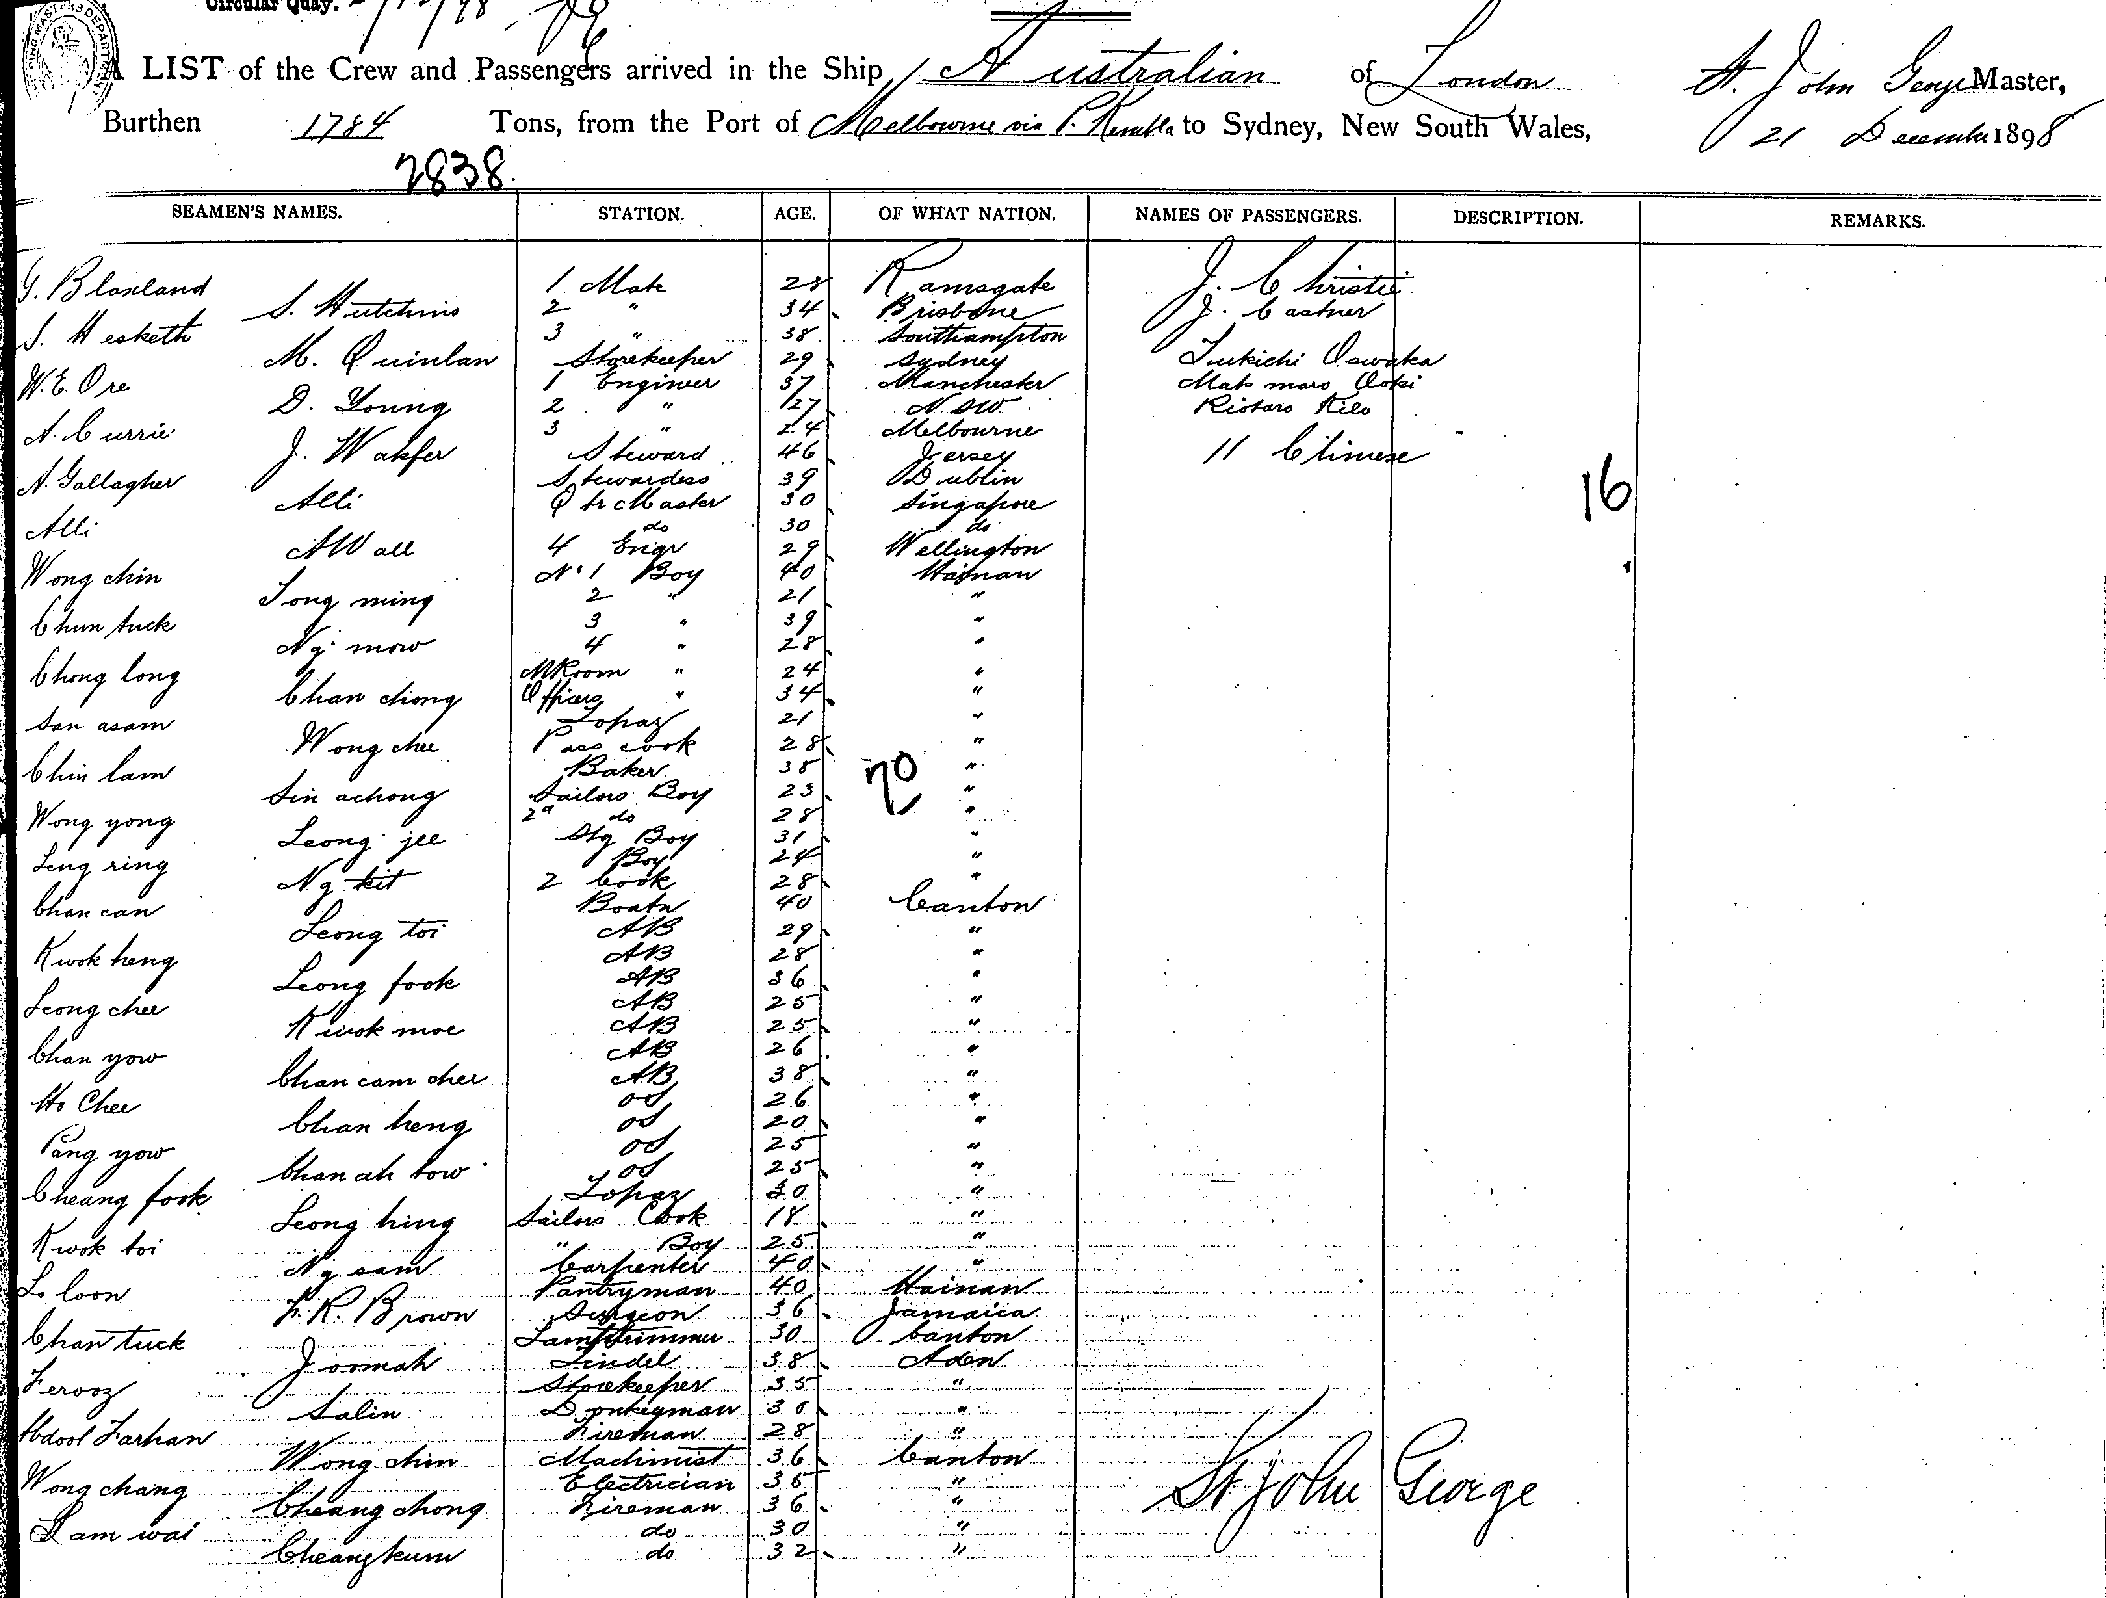 Circular Quay.
A LIST of the Crew and Passengers arrived in the Ship Australian of London St. John George Master,
Burthen 1784 Tons, from the Port of Melbourne via P. Kembla to Sydney, New South Wales, 21 December 1898
2838.
SEAMEN'S NAMES. STATION. AGE. OF WHAT NATION. NAMES OF PASSENGERS. DESCRIPTION. REMARKS.
G. Blaxland 1 Mate 28 Ramsgate J. Christie
S. Hutchins 2 " 34 Brisbane J. Castner
S. Hesketh 3 " 38 Southampton
M. Quinlan Storekeeper 29 Sydney Tukichi Oswaka
W.E. Ore 1 Engineer 37 Manchester
D. Young 2 " 27 NSW
A. Currie 3 " 24 Melbourne
J. Wakfer Steward 46 Jersey 11 Chinese
A. Gallagher Stewardess 39 Dublin 16
Alli Qtr Master 30 Singapore
Alli do 30 do
A Wall 4 Engr 29 Wellington
Wong chin No 1 Boy 40 Hainan
Tong ming 2 " 21 "
Chun tuck 3 " 39 "
Ng mow 4 " 28 "
Chong long MRoom " 24 "
Chan chong Officers " 34 "
San asam Topaz 21 "
Wong chee Pass cook 28 "
Chin lam Baker 38 "
70
Sin achong Sailors Boy 23 "
Wong yong 2nd do 28 "
Leong jee Stg Boy 31 "
Leng ring Boy 24 "
Ng kit 2 Cook 28 "
Chan can Boatn 40 Canton
Leong toi AB 29 "
Kwok heng AB 28 "
Leong fook AB 36 "
Leong chee AB 25 "
Kwok moe AB 25 "
Chan yow AB 26 "
Chan cam chee AB 38 "
Ho Chee OS 26 "
Chan heng OS 20 "
Pang yow OS 25 "
Chan ah tow OS 25 "
Cheang fook Topaz 30 "
Leong hing Sailors Cook 18 "
Kwok toi " Boy 25 "
Ng sam Carpenter 40 "
Lo loon Pantryman 40 Hainan
F.R. Brown Surgeon 36 Jamaica
Chan tuck Lamptrimmer 30 Canton
Joomah Tindel 38 Aden
Ferooz Storekeeper 35 "
Salin Donkeyman 30 "
Abdool Farhan Fireman 28 "
Wong chin Machinist 36 Canton
Wong chang Electrician 35 "
Cheang chong Fireman 36 " St John George
Lam wai do 30 "
Cheang kum do 32 "